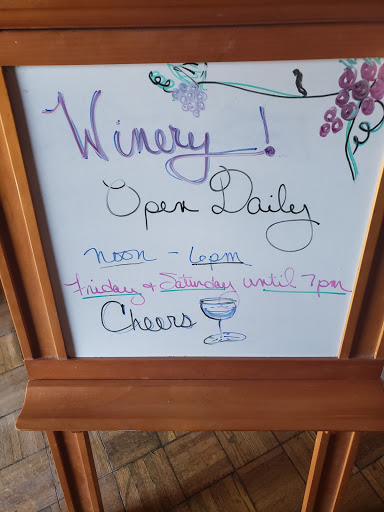 Winery!
Open Daily
noon - 6pm
Friday & Saturday until 7pm
Cheers